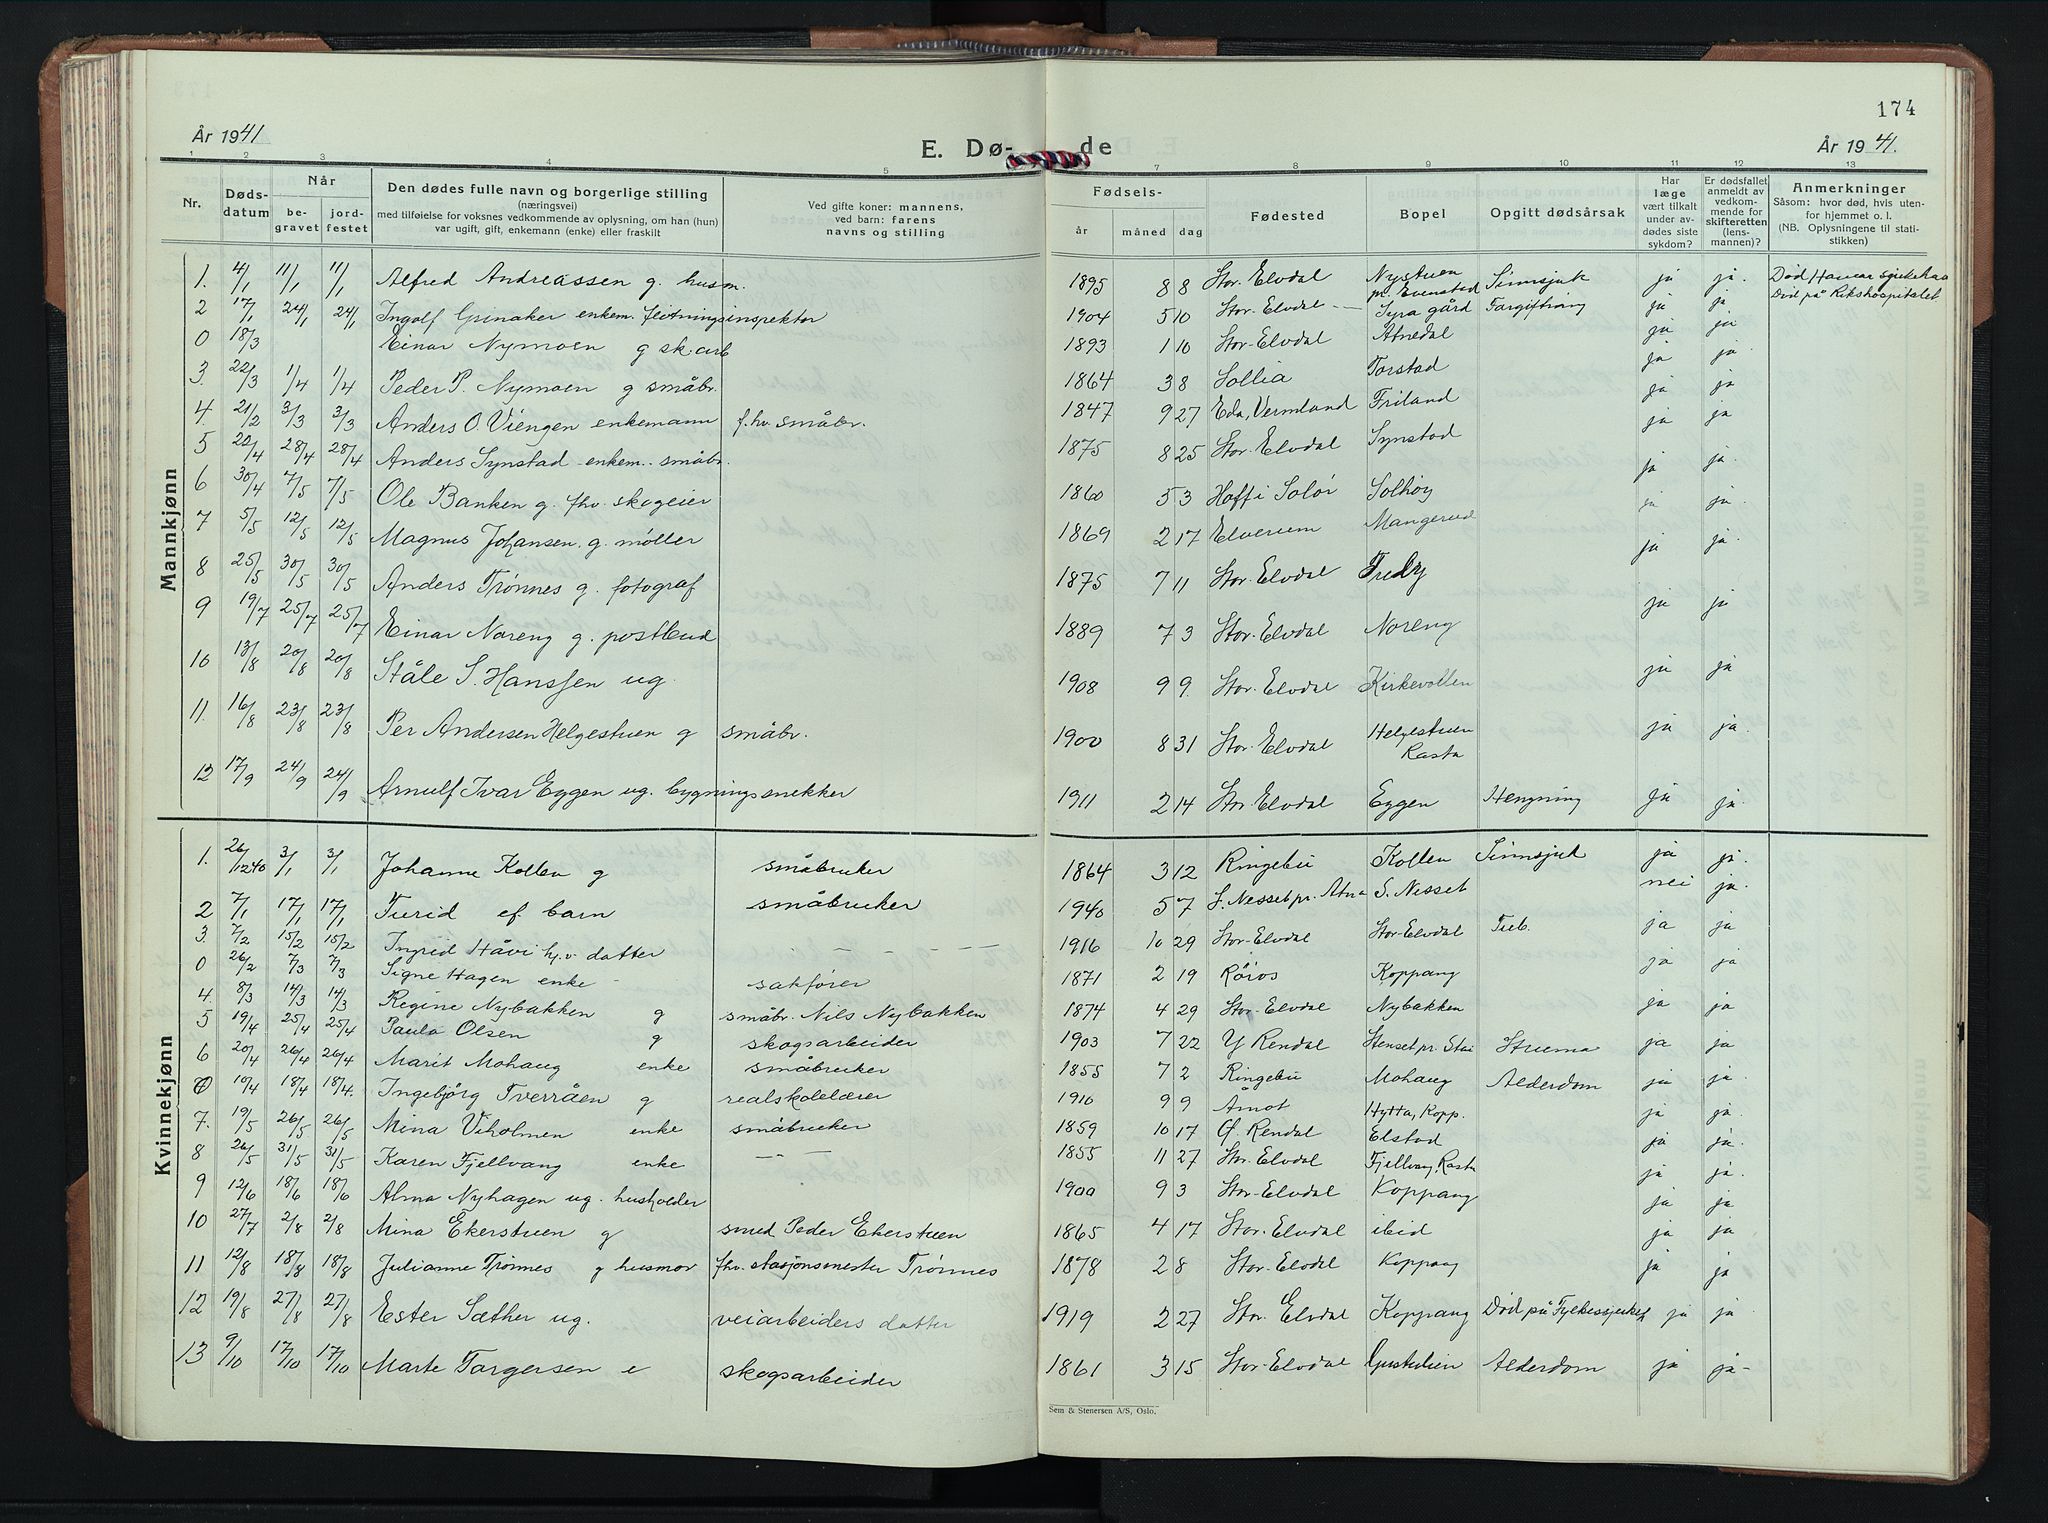 174
År 1941
E. Dø- de
År 1941.
1 2 3 4 5 7 8 9 10 11 12 13
Nr.
Døds-
datum
Når
be-
gravet
jord-
festet
Den dødes fulle navn og borgerlige stilling
(næringsvei)
med tilføielse for voksnes vedkommende av oplysning, om han (hun)
var ugift, gift, enkemann (enke) eller fraskilt
Ved gifte koner: mannens,
ved barn: farens
navns og stilling
Fødsels-
år måned dag
Fødested
Bopel
Opgitt dødsårsak
Har
læge
vært tilkalt
under av-
dødes siste
sykdom?
Er dødsfallet
anmeldt av
vedkom-
mende for
skifteretten
(lens-
mannen)?
Anmerkninger
Såsom: hvor død, hvis uten-
for hjemmet o. l.
(NB. Oplysningene til stati-
stikken)
Mannkjønn
1. 4/1 11/1 11/1 Alfred Andreassen g. husm. 1895 8 8 Stor-Elvdal Nystuen pr. Evenstad Sinnsjuk ja ja. Død Hamar sjukehus
2 17/1 24/1 24/1 Ingolf Grenaker enkem. fløtningsinspektør 1904 5 10 Stor-Elvdal Syra gård Forgiftning ja ja Død på Rikshospitalet
0 18/3 Einar Nymoen g sk.arb 1893 1 10 Stor-Elvdal Atnedal ja ja
3. 22/3 1/4 1/4 Peder P. Nymoen g småbr. 1864 3 8 Sollia Torstad ja ja.
4. 21/2 3/3 3/3 Anders O. Viengen enkemann f.hv. småbr. 1847 9 27 Eda, Vermland Friland ja ja
5 22/4 28/4 28/4 Anders Synstad enkem. småbr. 1875 8 25 Stor-Elvdal Synstad ja ja
6 30/4 7/5 7/5 Ole Banken g. fhv. skogeier 1860 5 3 Hoff i Solør Solhøy ja ja.
7 5/5 12/5 12/5 Magnus Johansen g. møller 1869 2 17 Elverum Mangerud ja ja.
8 25/5 30/5 30/5 Anders Trønnes g. fotograf 1875 7 11 Stor-Elvdal Fredly ja ja.
9 19/7 25/7 25/7 Einar Noreng g. postbud 1889 7 3 Stor-Elvdal Noreng ja ja
10 13/8 20/8 20/8 Ståle S. Hanssen ug. 1908 9 9. Stor-Elvdal Kirkevollen ja ja
11. 16/8 23/8 23/8 Per Andersen Helgestuen g småbr. 1900 8 31 Stor-Elvdal Helgestuen Rasta ja ja.
12 17/9 24/9 24/9 Arnulf Ivar Eggen ug. bygningssnekker 1911 2 14 Stor-Elvdal Eggen Hengning ja ja.
Kvinnekjønn
1. 26/12 40 3/1 3/1 Johanne Kollen g småbruker 1864 3 12 Ringebu Kollen Sinnsjuk ja ja.
2 7/1 17/1 17/1 Turid ef. barn småbruker 1940 5 7 S. Nesset pr. Atna S. Nesset nei ja.
3. 7/2 15/2 15/2 Ingrid Håvi hj.v. datter 1916 10 29 Stor-Elvdal Stor-Elvdal Tub. ja ja
0 26/2 7/3 7/3 Signe Hagen enke - sakfører 1871 2 19 Røros Koppang ja ja
4. 8/3 14/3 14/3 Regine Nybakken g småbr. Nils Nybakken 1874 4 29 Stor-Elvdal Nybakken ja ja
5 19/4 25/4 25/4 Paula Olsen g skogsarbeider 1903 7 22 Y Rendal Stenset pr. Stai Struma ja ja.
6 20/4 26/4 26/4 Marit Mohaug enke småbruker 1855 7 2 Ringebu Mohaug Alderdom ja ja.
0 10/4 18/4 18/4. Ingebjörg Tverråen g realskolelærer 1910 9 9 Åmot Hytta, Kopp. ja ja
7. 19/5 26/5 26/5 Mina Viholmen enke småbruker 1859 10 17 Y. Rendal Elstad ja ja.
8 26/5 31/5 31/5 Karen Fjellvang enke — " — 1855 11 27 Stor-Elvdal Fjellvang, Rasta ja ja.
9 12/6 18/6 18/6 Alma Nyhagen ug. husholder 1900 9 3 Stor-Elvdal Koppang ja ja
10 27/7 2/8 2/8 Mina Ekerstuen g smed Peder Ekerstuen 1865 4 17 Stor-Elvdal ibid ja ja
11 12/8 18/8 18/8 Julianne Trønnes g husmor fhv. stasjonsmester Trønnes 1878 2 8 Stor-Elvdal Koppang ja ja
12 19/8 27/8 27/8 Ester Sæther ug. veiarbeiders datter 1919 2 27 Stor-Elvdal Koppang Død på Fylkessjukeh ja ja
13 9/10 17/10 17/10 Marte Torgersen e skogsarbeider 1861 3 15 Stor-Elvdal Alderdom ja ja-
Sem & Stenersen A/S, Oslo.